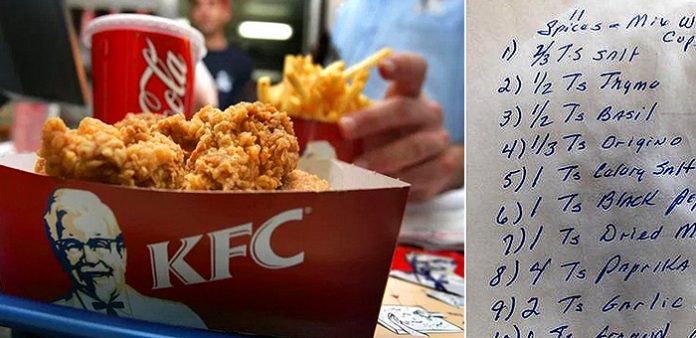 KFC
Coca
Cola
11
Spices = Mix W
Cup
1) 2/3 Ts Salt
2) 1/2 Ts Thyme
3) 1/2 Ts Basil
4) 1/3 Ts Origino
5) 1 Ts Celary Salt
6) 1 Ts Black Pe
7) 1 Ts Dried M
8) 4 Ts Paprika
9) 2 Ts Garlic